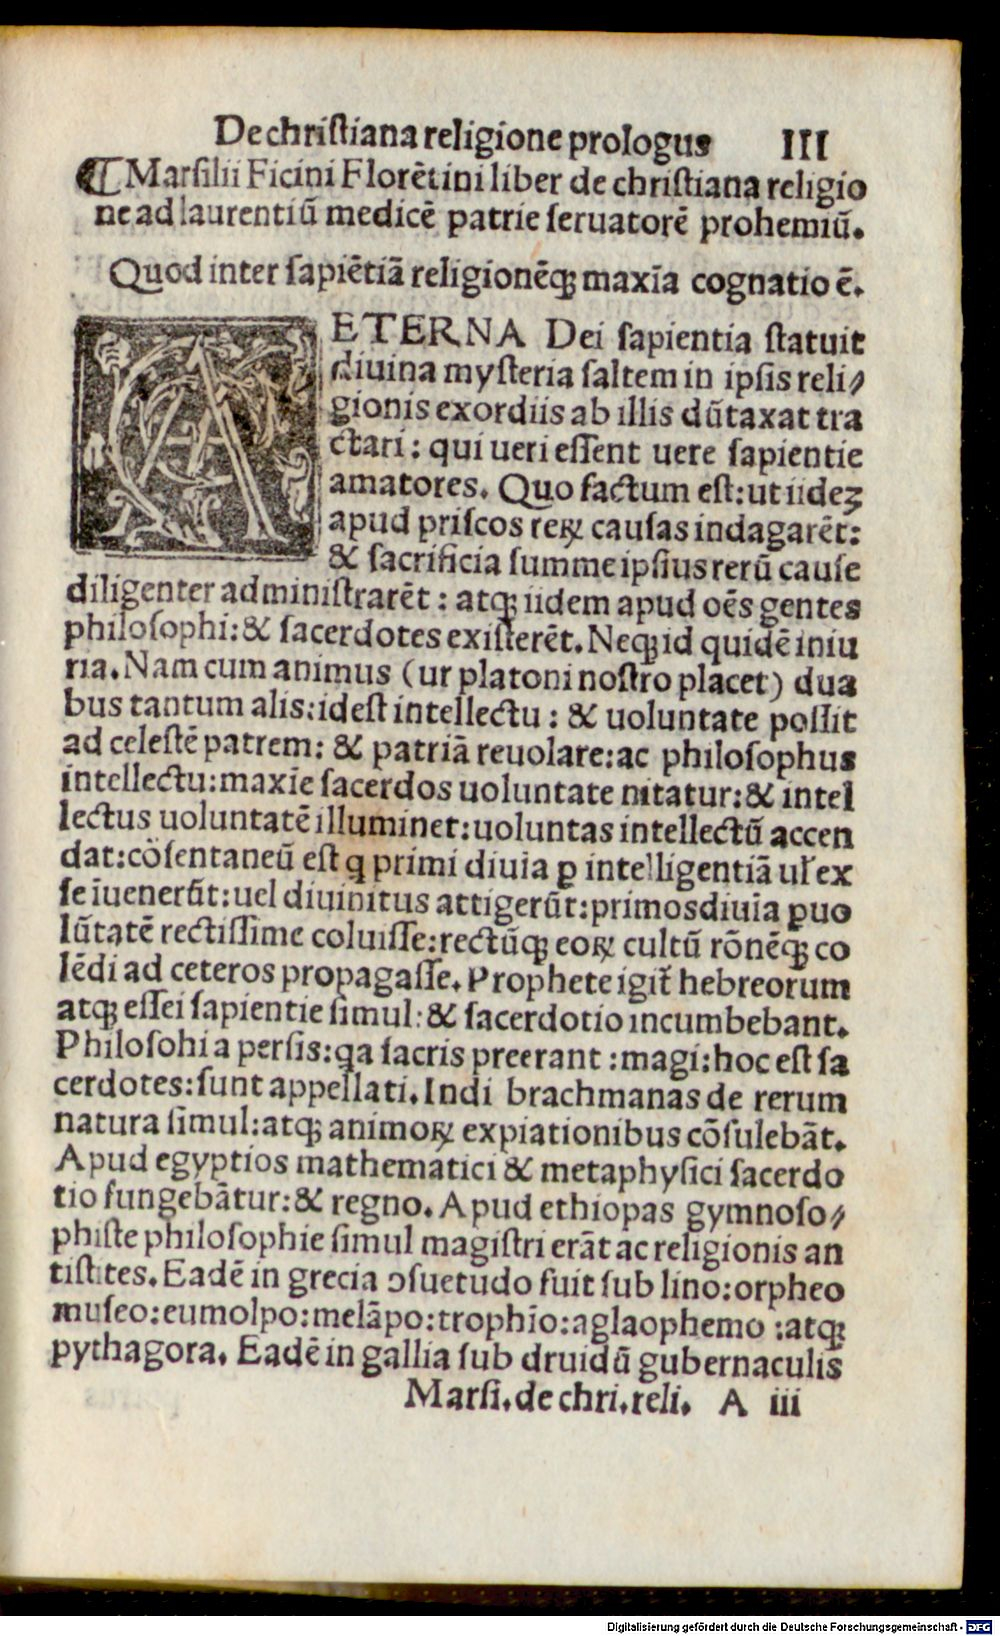 De christiana religione prologus III
⁋ Marsilii Ficini Florētini liber de christiana religio
ne ad laurentiū medicē patrie seruatorē prohemiū.
Quod inter sapiētiā religionēq; maxīa cognatio ē.
AETERNA Dei sapientia statuit
diuina mysteria saltem in ipsis reli⸗
gionis exordiis ab illis dūtaxat tra
ctari: qui ueri essent uere sapientie
amatores. Quo factum est: ut iidez
apud priscos reꝝ causas indagarēt:
& sacrificia summe ipsius rerū cause
diligenter administrarēt: atq; iidem apud oēs gentes
philosophi: & sacerdotes existerēt. Neq; id quidē iniu
ria. Nam cum animus (ur platoni nostro placet) dua
bus tantum alis: idest intellectu: & uoluntate possit
ad celestē patrem: & patriā reuolare: ac philosophus
intellectu: maxīe sacerdos uoluntate nitatur: & intel
lectus uoluntatē illuminet: uoluntas intellectū accen
dat: cōsentaneū est ꝙ primi diuīa ꝑ intelligentiā uƚ ex
se īuenerūt: uel diuinitus attigerūt: primos diuīa ꝑ uo
lūtatē rectissime coluisse: rectūq; eoꝝ cultū rōnēq; co
lēdi ad ceteros propagasse. Prophete igit̃ hebreorum
atq; essei sapientie simul: & sacerdotio incumbebant.
Philosohi a persis: qa sacris preerant: magi: hoc est sa
cerdotes: sunt appellati. Indi brachmanas de rerum
natura simul: atq; animoꝝ expiationibus cōsulebāt.
Apud egyptios mathematici & metaphysici sacerdo
tio fungebātur: & regno. Apud ethiopas gymnoso⸗
phiste philosophie simul magistri erāt ac religionis an
tistites. Eadē in grecia ɔsuetudo fuit sub lino: orpheo
museo: eumolpo: melāpo: trophīo: aglaophemo: atq;
pythagora. Eadē in gallia sub druidū gubernaculis
Marsi. de chri. reli. A iii
Digitalisierung gefördert durch die Deutsche Forschungsgemeinschaft - DFG